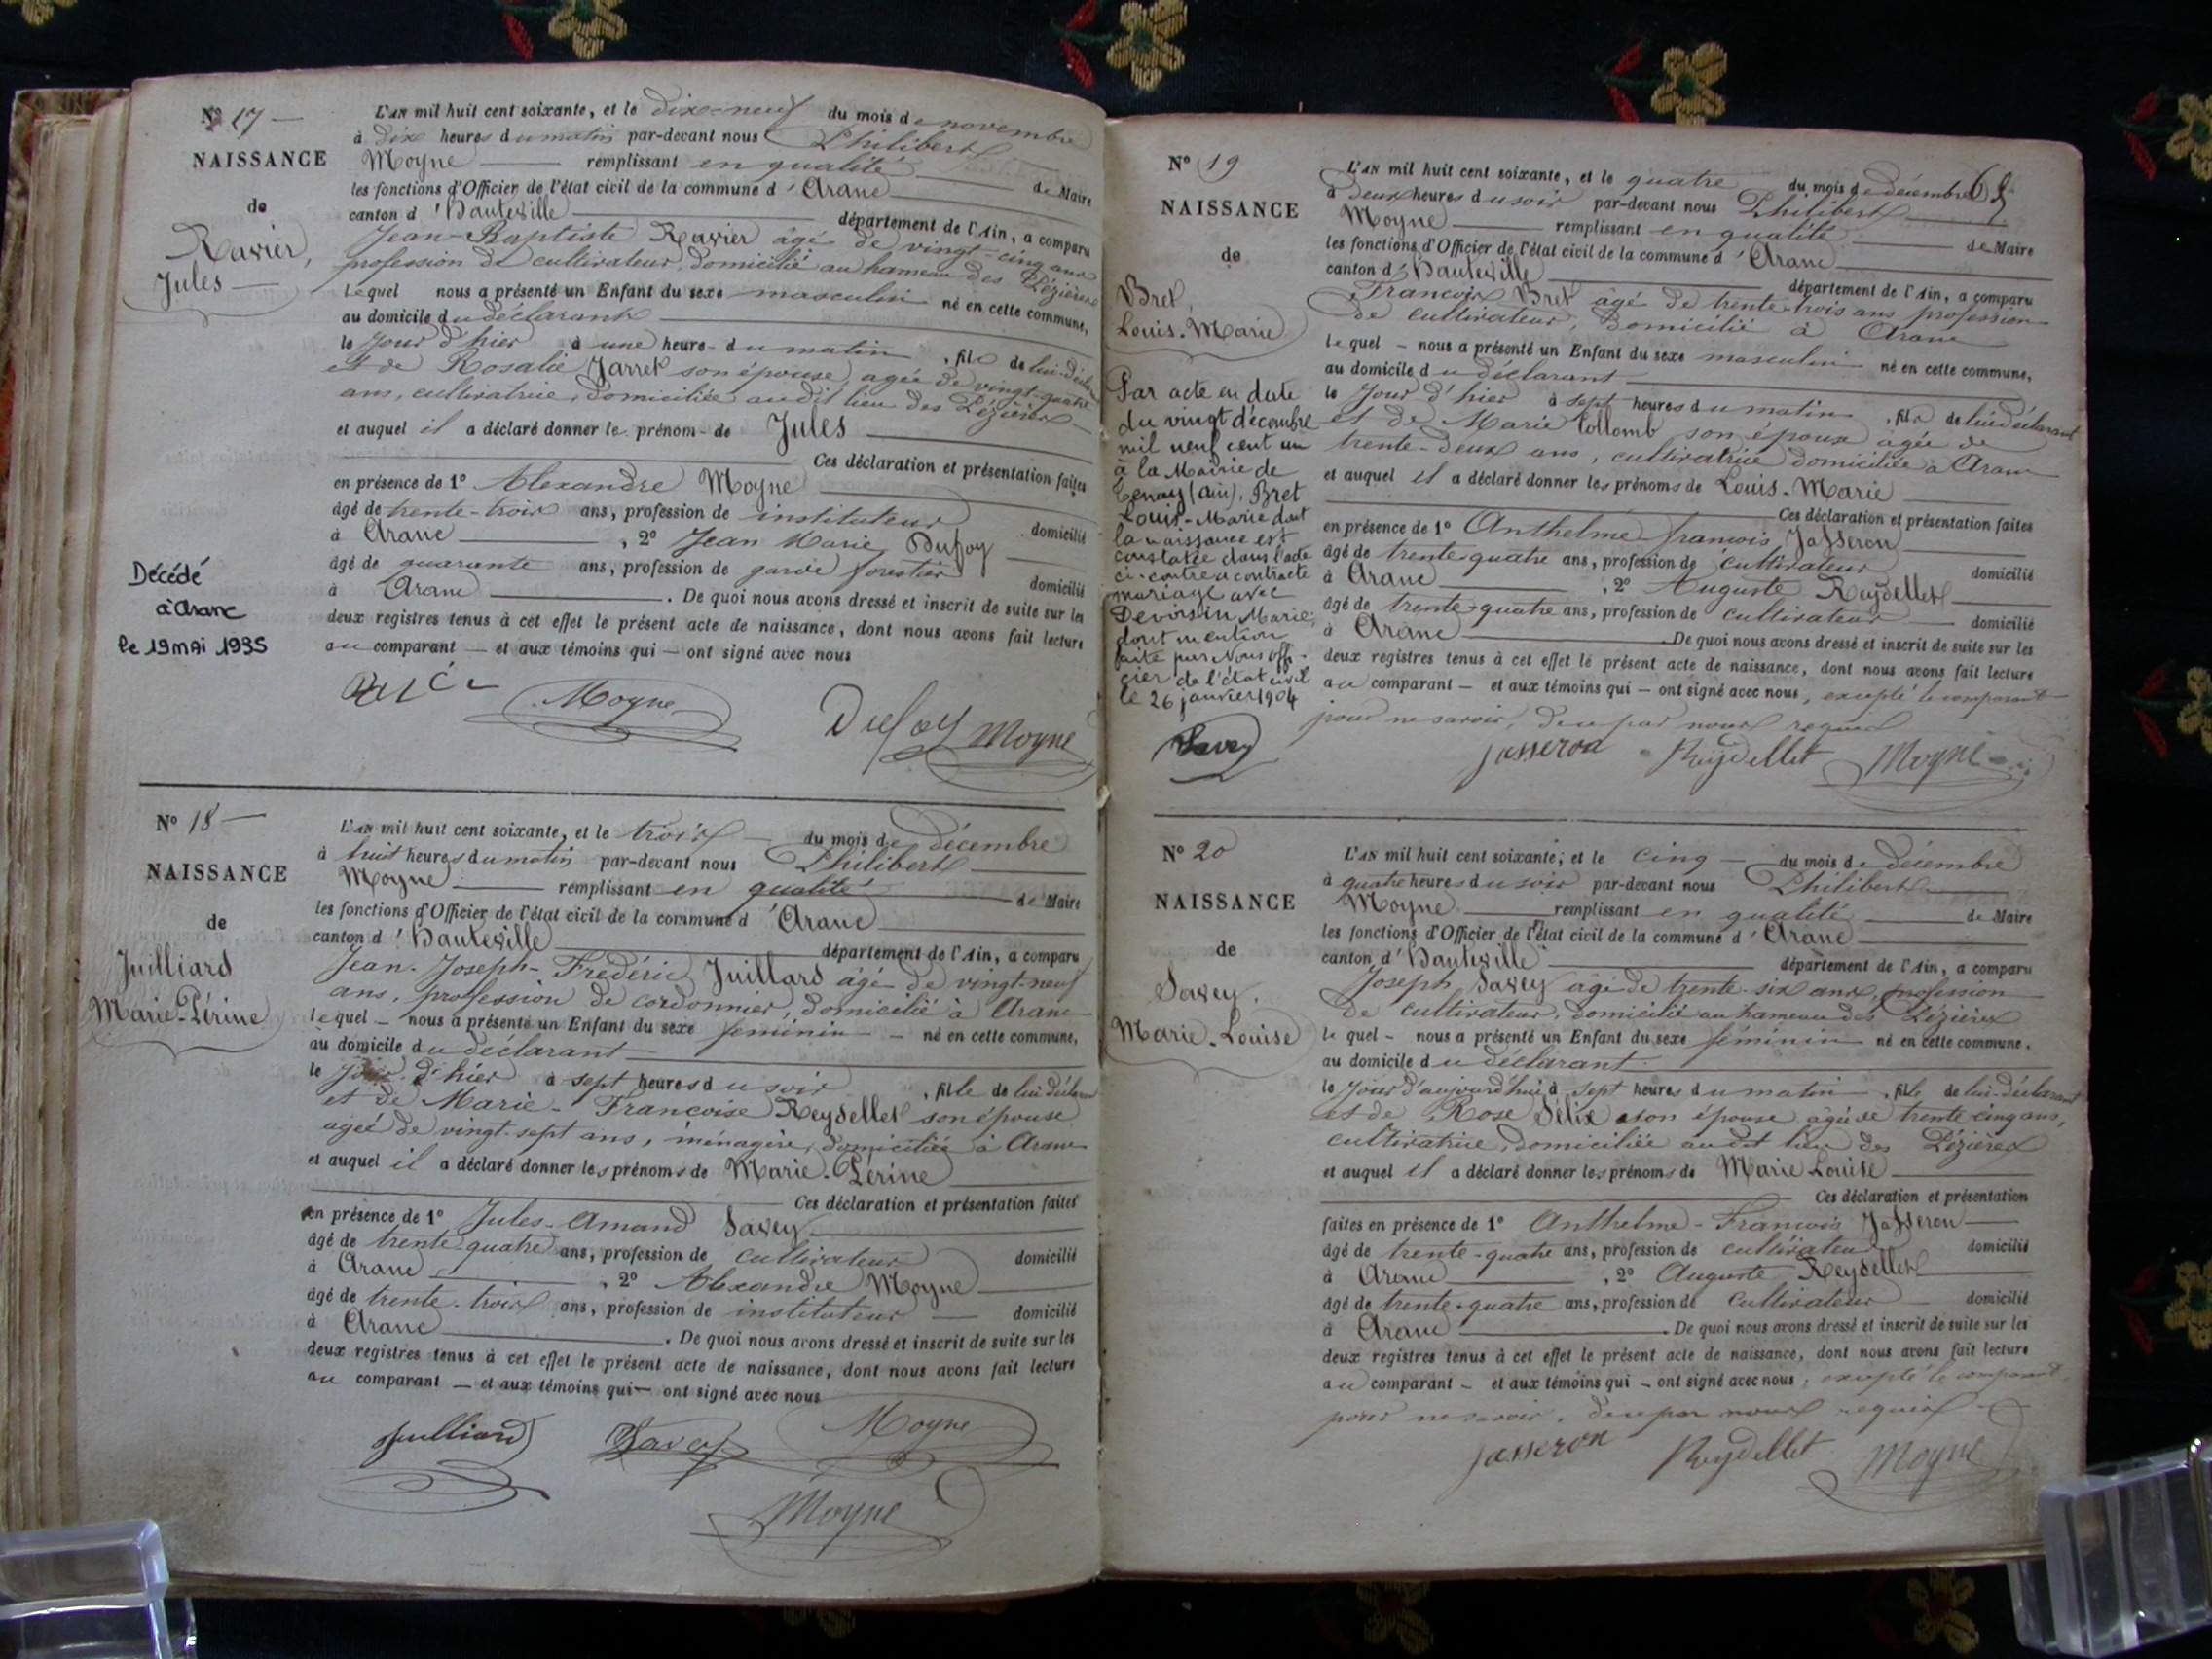 N° 17
NAISSANCE
de
Ravier,
Jules
Décédé
à Aranc
le 19 mai 1935
L'AN mil huit cent soixante, et le dix-neuf du mois de novembre
à dix heures du matin par-devant nous Philibert
Moyne remplissant en qualité de Maire
les fonctions d'Officier de l'état civil de la commune d'Aranc
canton d'Hauteville département de l'Ain, a comparu
Jean-Baptiste Ravier âgé de vingt-cinq ans
profession de cultivateur, domicilié au hameau des Lézières
lequel nous a présenté un Enfant du sexe masculin né en cette commune,
au domicile du déclarant
le jour d'hier à une heure du matin, fils de lui déclarant
et de Rosalie Jarret son épouse, agée de vingt-quatre
ans, cultivatrice, domiciliée audit lieu des Lézières
et auquel il a déclaré donner le prénom de Jules
Ces déclaration et présentation faites
en présence de 1° Alexandre Moyne
âgé de trente-trois ans, profession de instituteur domicilié
à Aranc, 2° Jean Marie Dufoy
âgé de quarante ans, profession de garde forestier domicilié
à Aranc. De quoi nous avons dressé et inscrit de suite sur les
deux registres tenus à cet effet le présent acte de naissance, dont nous avons fait lecture
au comparant et aux témoins qui ont signé avec nous
Moyne Dufoy Moyne
N° 18
NAISSANCE
de
Juilliard
Marie-Périne
L'AN mil huit cent soixante, et le trois du mois de décembre
à huit heures du matin par-devant nous Philibert
Moyne remplissant en qualité de Maire
les fonctions d'Officier de l'état civil de la commune d'Aranc
canton d'Hauteville département de l'Ain, a comparu
Jean-Joseph-Frédéric Juillard âgé de vingt-neuf
ans, profession de cordonnier, domicilié à Aranc
lequel nous a présenté un Enfant du sexe féminin né en cette commune,
au domicile du déclarant
le jour d'hier à sept heures du soir, fille de lui déclarant
et de Marie-Françoise Reydellet son épouse
agée de vingt-sept ans, ménagère, domiciliée à Aranc
et auquel il a déclaré donner les prénoms de Marie-Périne
Ces déclaration et présentation faites
en présence de 1° Jules-Amand Savey
âgé de trente-quatre ans, profession de cultivateur domicilié
à Aranc, 2° Alexandre Moyne
âgé de trente-trois ans, profession de instituteur domicilié
à Aranc. De quoi nous avons dressé et inscrit de suite sur les
deux registres tenus à cet effet le présent acte de naissance, dont nous avons fait lecture
au comparant et aux témoins qui ont signé avec nous
Juilliard Savey Moyne
Moyne
N° 19
NAISSANCE
de
Bret,
Louis-Marie
Par acte en date
du vingt décembre
mil neuf cent un
à la Mairie de
Tenay (Ain), Bret
Louis-Marie dont
la naissance est
constatée dans l'acte
ci-contre a contracté
mariage avec
Devoisin Marie,
dont mention
faite par Nous offi-
cier de l'état civil
le 26 janvier 1904
Savey
L'AN mil huit cent soixante, et le quatre du mois de décembre
à deux heures du soir par-devant nous Philibert
Moyne remplissant en qualité de Maire
les fonctions d'Officier de l'état civil de la commune d'Aranc
canton d'Hauteville département de l'Ain, a comparu
François Bret âgé de trente-trois ans profession
de cultivateur, domicilié à Aranc
lequel nous a présenté un Enfant du sexe masculin né en cette commune,
au domicile du déclarant
le jour d'hier à sept heures du matin, fils de lui déclarant
et de Marie Collomb son épouse âgée de
trente-deux ans, cultivatrice domiciliée à Aranc
et auquel il a déclaré donner les prénoms de Louis-Marie
Ces déclaration et présentation faites
en présence de 1° Anthelme-françois Jasseron
âgé de trente-quatre ans, profession de cultivateur domicilié
à Aranc, 2° Auguste Reydellet
âgé de trente-quatre ans, profession de cultivateur domicilié
à Aranc. De quoi nous avons dressé et inscrit de suite sur les
deux registres tenus à cet effet le présent acte de naissance, dont nous avons fait lecture
au comparant et aux témoins qui ont signé avec nous, excepté le comparant
pour ne savoir, de ce par nous requis
Jasseron Reydellet Moyne
N° 20
NAISSANCE
de
Savey,
Marie-Louise
L'AN mil huit cent soixante, et le cinq du mois de décembre
à quatre heures du soir par-devant nous Philibert
Moyne remplissant en qualité de Maire
les fonctions d'Officier de l'état civil de la commune d'Aranc
canton d'Hauteville département de l'Ain, a comparu
Joseph Savey âgé de trente-six ans, profession
de cultivateur, domicilié au hameau des Lézières
lequel nous a présenté un Enfant du sexe féminin né en cette commune,
au domicile du déclarant
le jour d'aujourd'hui à sept heures du matin, fille de lui déclarant
et de Rose Félix son épouse âgée de trente cinq ans,
cultivatrice, domiciliée audit lieu des Lézières
et auquel il a déclaré donner les prénoms de Marie Louise
Ces déclaration et présentation
faites en présence de 1° Anthelme-François Jasseron
âgé de trente-quatre ans, profession de cultivateur domicilié
à Aranc, 2° Auguste Reydellet
âgé de trente-quatre ans, profession de cultivateur domicilié
à Aranc. De quoi nous avons dressé et inscrit de suite sur les
deux registres tenus à cet effet le présent acte de naissance, dont nous avons fait lecture
au comparant et aux témoins qui ont signé avec nous, excepté le comparant
pour ne savoir, de ce par nous requis
Jasseron Reydellet Moyne